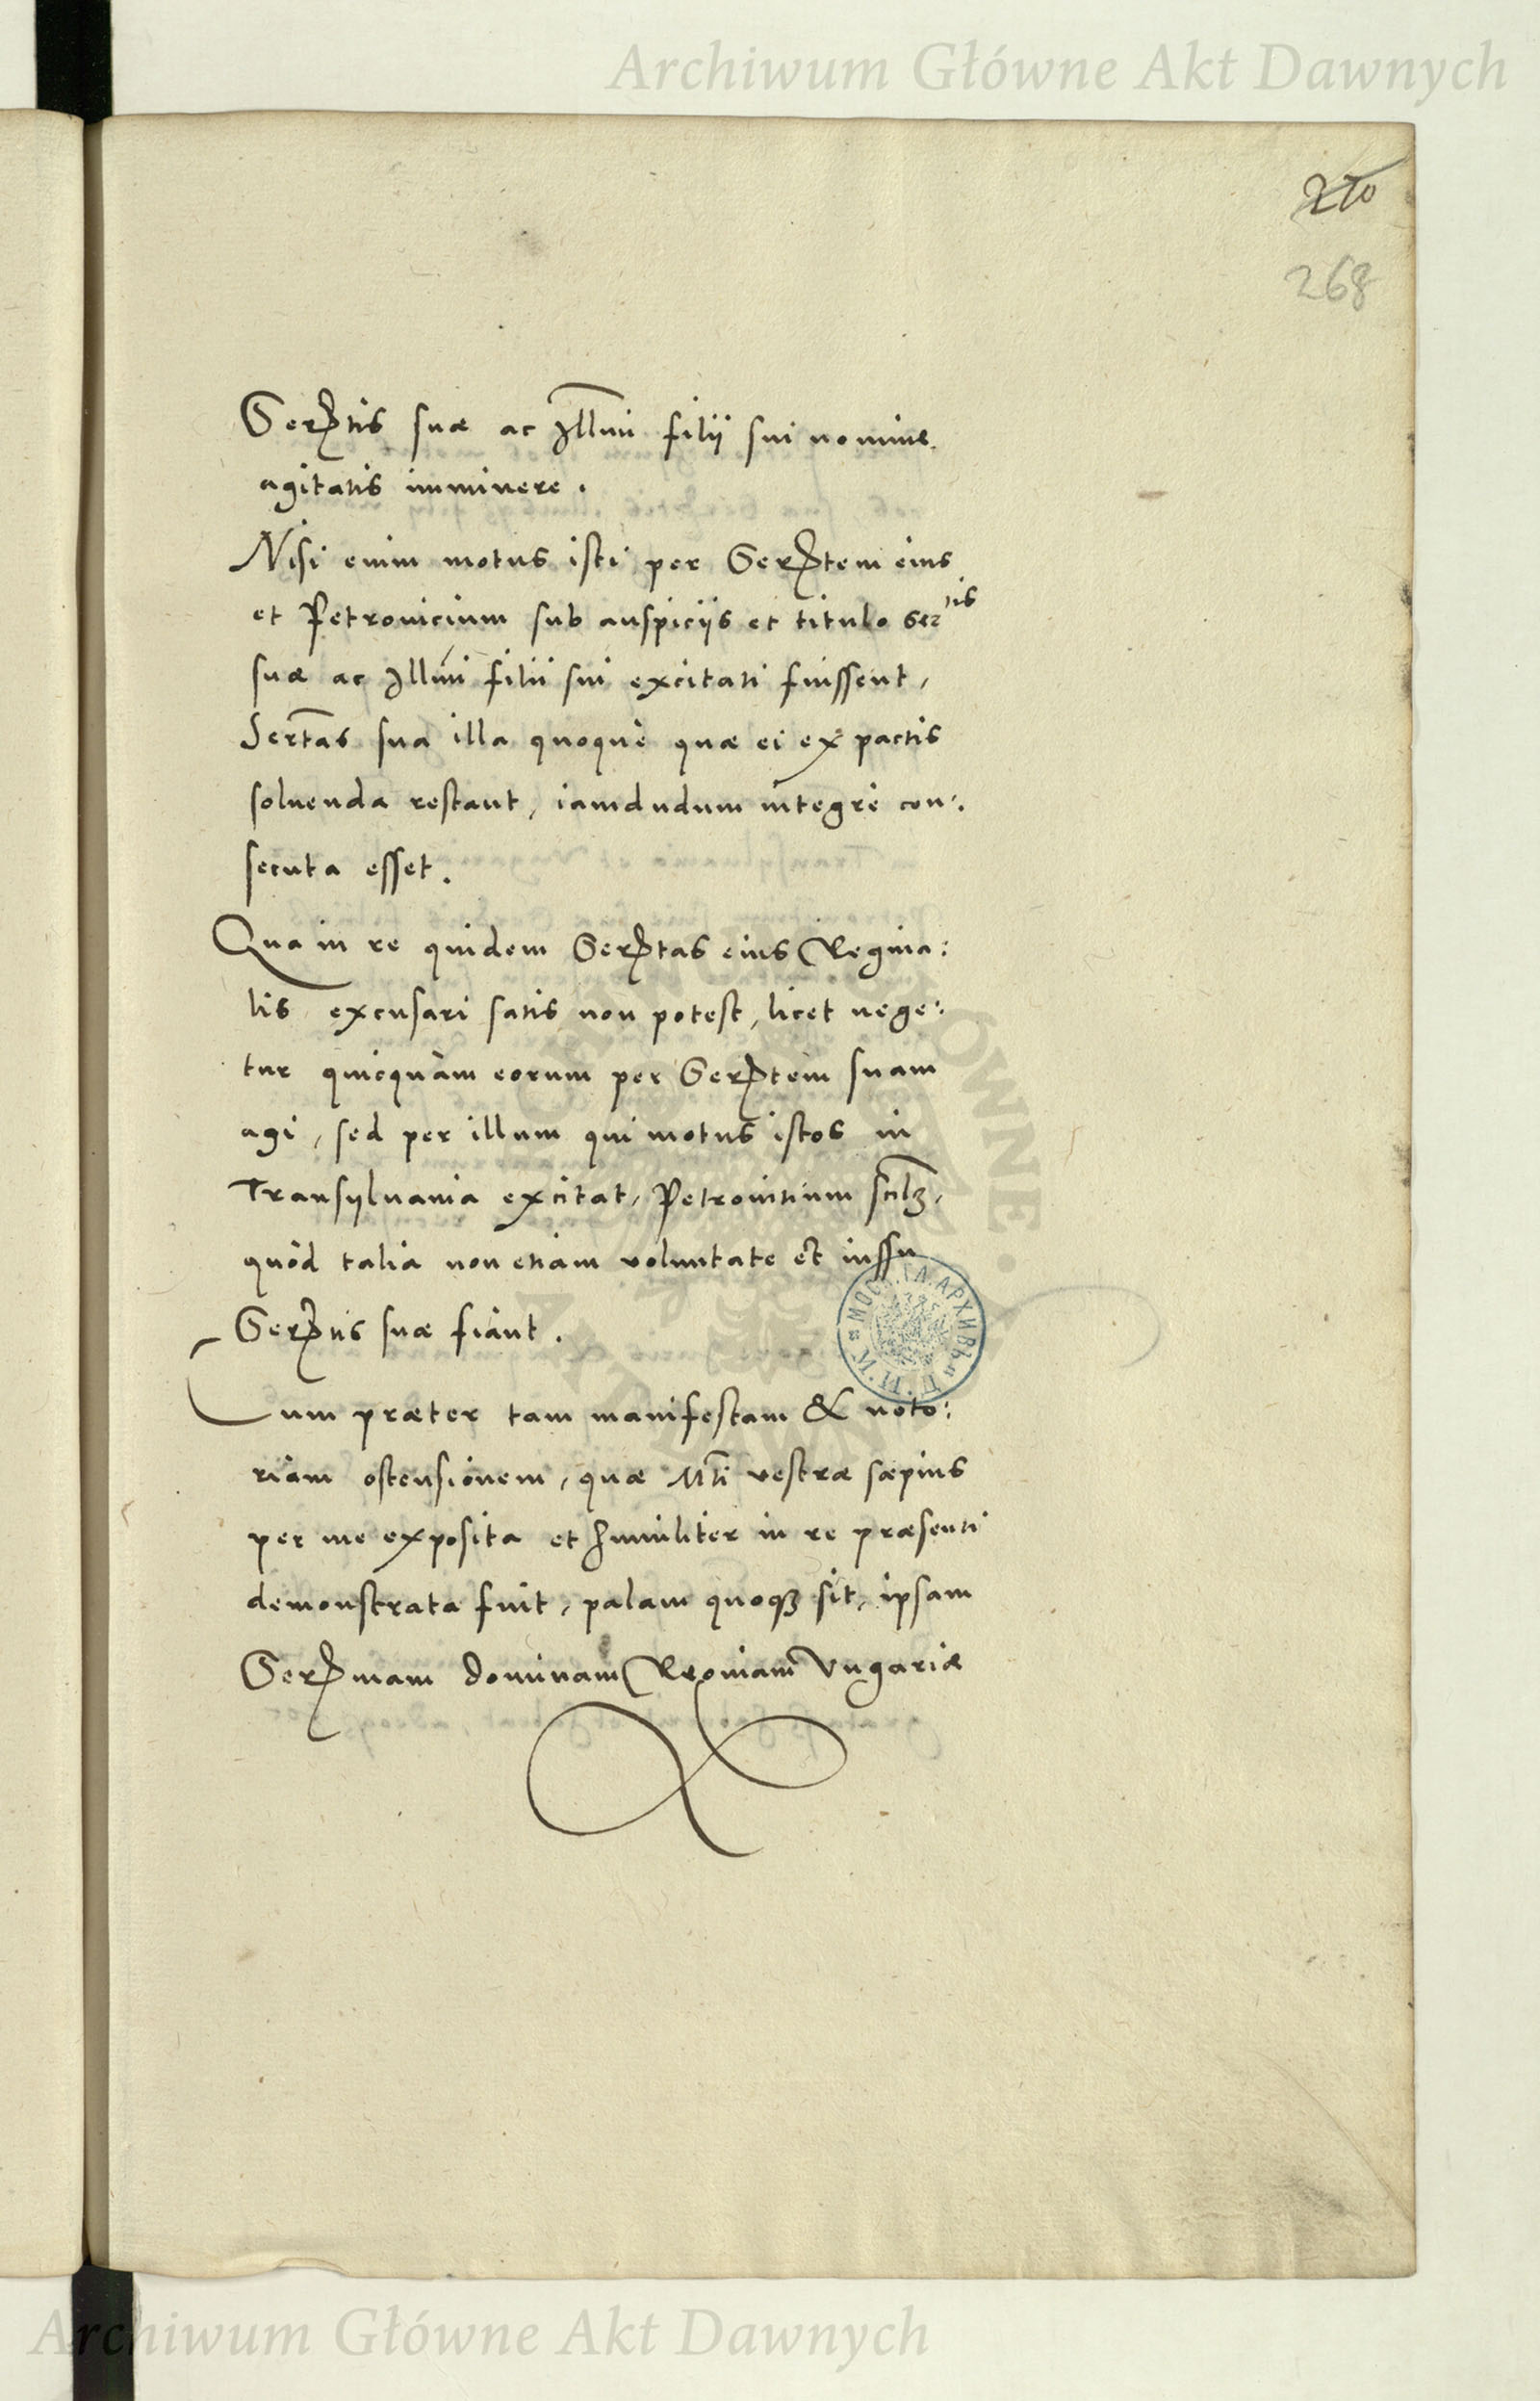 Archiwum Główne Akt Dawnych
210
268
Serᵐtis suæ ac Illmi filii sui nomine
agitatis imminere.
Nisi enim motus isti per Serᵐtem eius
et Petrovicium sub auspiciis et titulo Serᵗⁱˢ
suæ ac Illmi filii sui excitati fuissent,
Sertas sua illa quoque quæ ei ex pactis
soluenda restant, iamdudum integrè con:
secuta esset.
Qua in re quidem Serᵐtas eius Regina:
lis excusari satis non potest, licet nege:
tur quicquàm eorum per Serᵐtem suam
agi, sed per illum qui motus istos in
Transyluania excitat, Petrouitium scilꝫ,
quòd talia non etiam voluntate et iussu
Serᵐtis suæ fiant.
Cum præter tam manifestam & noto:
riam ostensionem, quæ Mti vestræ sæpius
per me exposita et humiliter in re præsenti
demonstrata fuit, palam quoqꝫ sit, ipsam
Serᵐmam dominam Reginam Vngariæ
Archiwum Główne Akt Dawnych